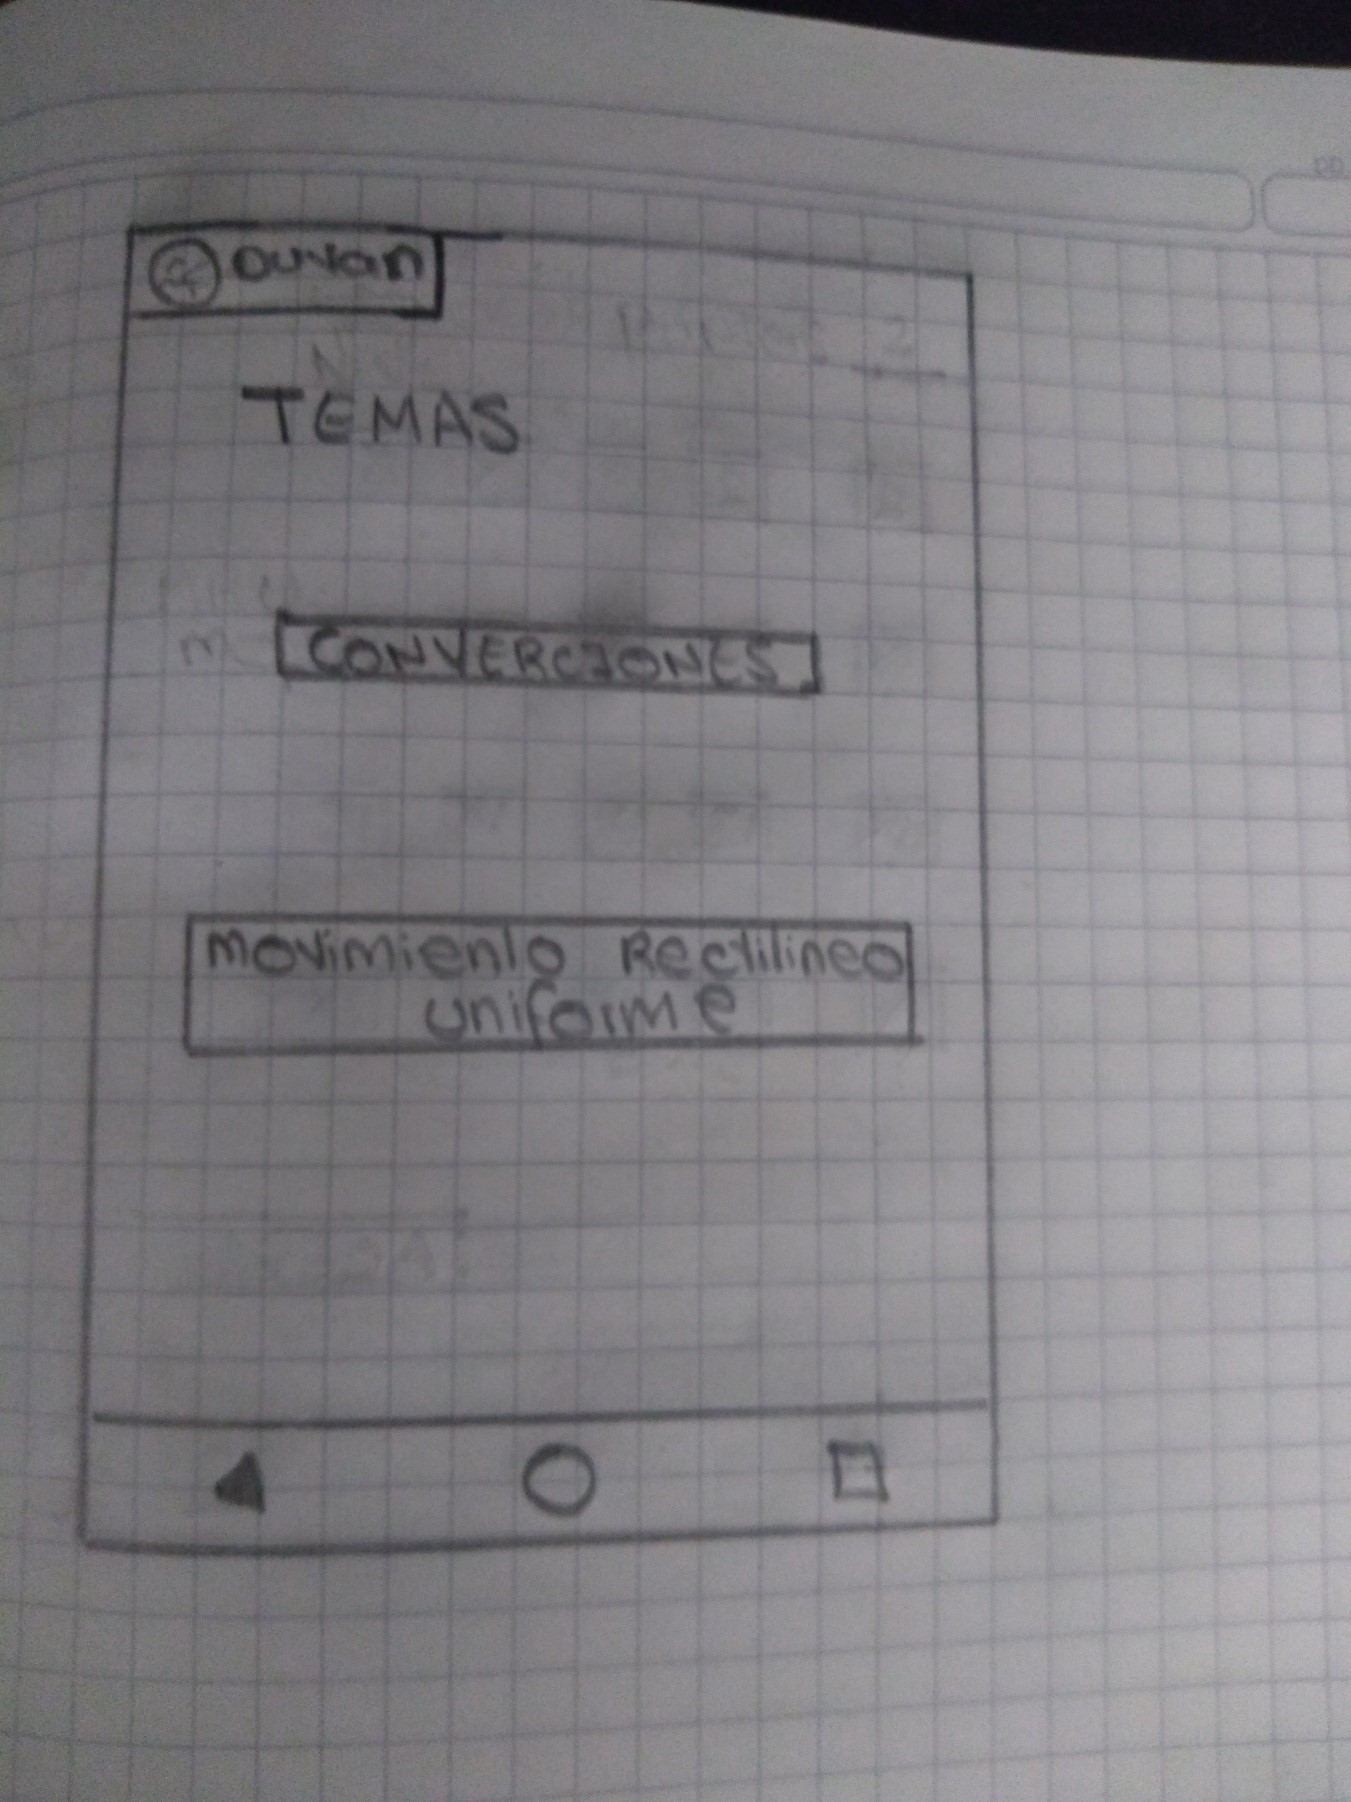 Duvan
TEMAS
CONVERCIONES
Movimiento Rectilineo
uniforme